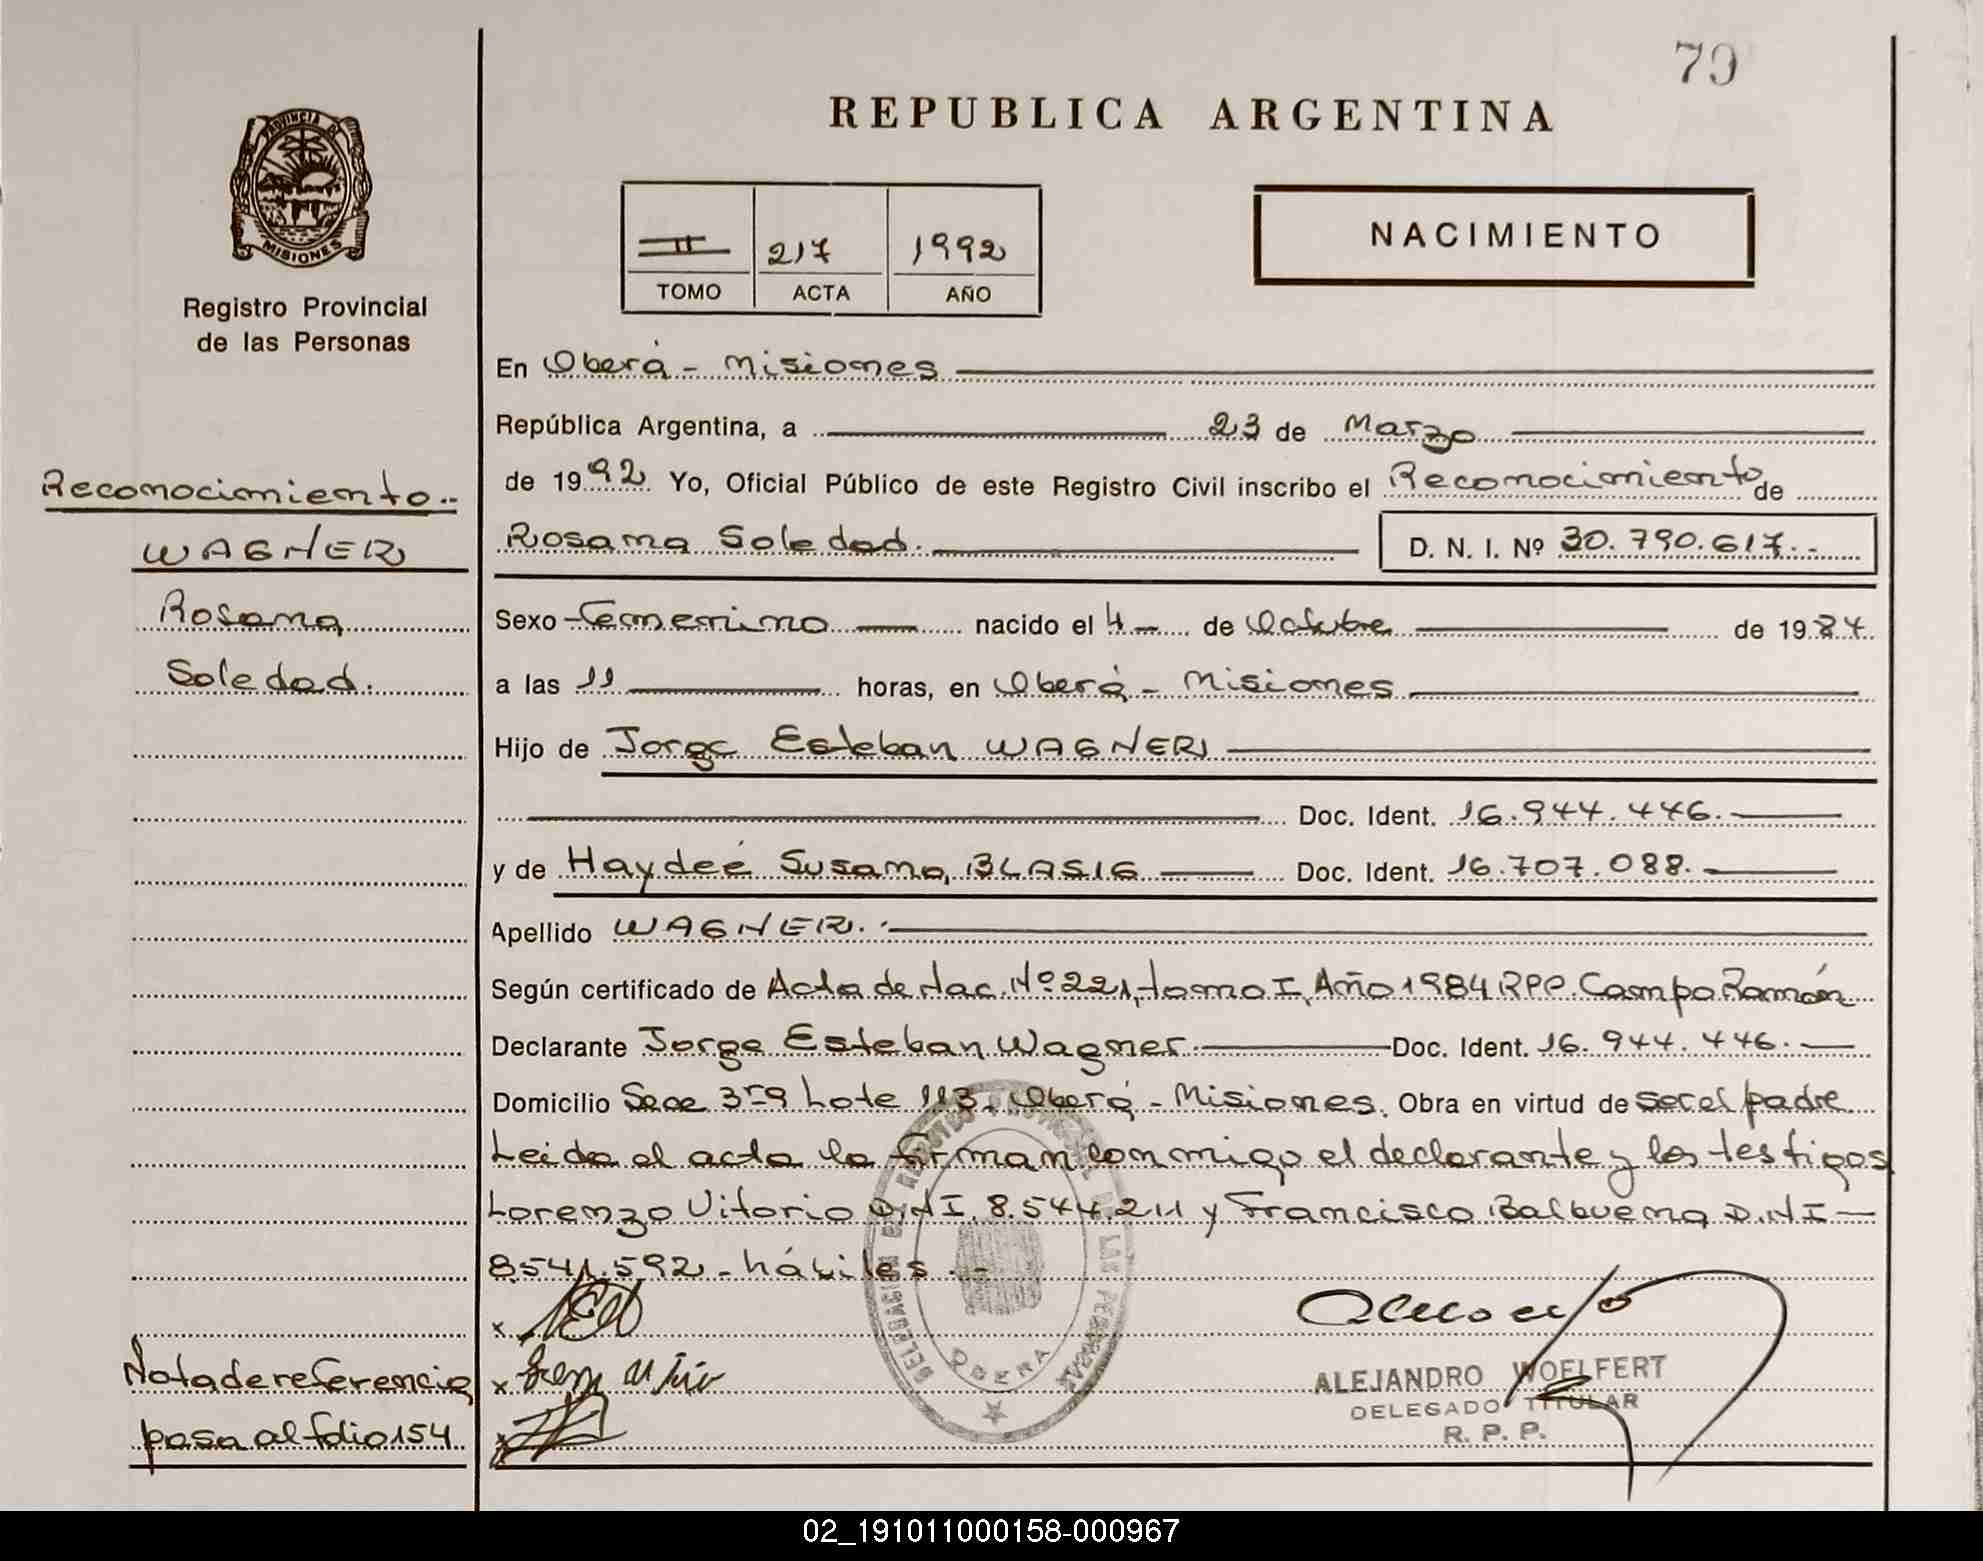 79
REPUBLICA ARGENTINA
PROVINCIA DE
MISIONES
Registro Provincial
de las Personas
II 217 1992
TOMO ACTA AÑO
NACIMIENTO
En Oberá - Misiones
República Argentina, a 23 de Marzo
de 1992 Yo, Oficial Público de este Registro Civil inscribo el Reconocimiento de
Rosana Soledad. D. N. I. Nº 30.790.617.-
Sexo Femenino nacido el 4 de Octubre de 1984
a las 11 horas, en Oberá - Misiones
Hijo de Jorge Esteban WAGNER
Doc. Ident. 16.944.446.
y de Haydeé Susana BLASIG Doc. Ident. 16.707.088.
Apellido WAGNER.
Según certificado de Acta de Nac. Nº 221, tomo I, Año 1984 RPP. Campo Ramón
Declarante Jorge Esteban Wagner. Doc. Ident. 16.944.446.
Domicilio Secc 3ra Lote 113. Oberá - Misiones. Obra en virtud de ser el padre
Leida el acta la firman conmigo el declarante y los testigos
Lorenzo Vitorio D.N.I. 8.544.211 y Francisco Balbuena D.N.I
8.541.592 - hábiles.-
Reconocimiento.-
WAGNER
Rosana
Soledad.
Nota de referencia
pasa al folio 154
OBERA
ALEJANDRO WOELFERT
DELEGADO TITULAR
R. P. P.
02_191011000158-000967